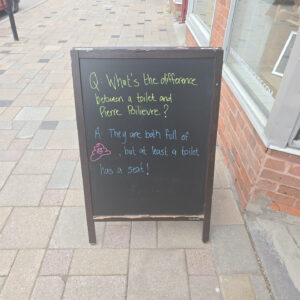 Q: What's the difference
between a toilet and
Pierre Poilievre?
A: They are both full of
, but at least a toilet
has a seat!